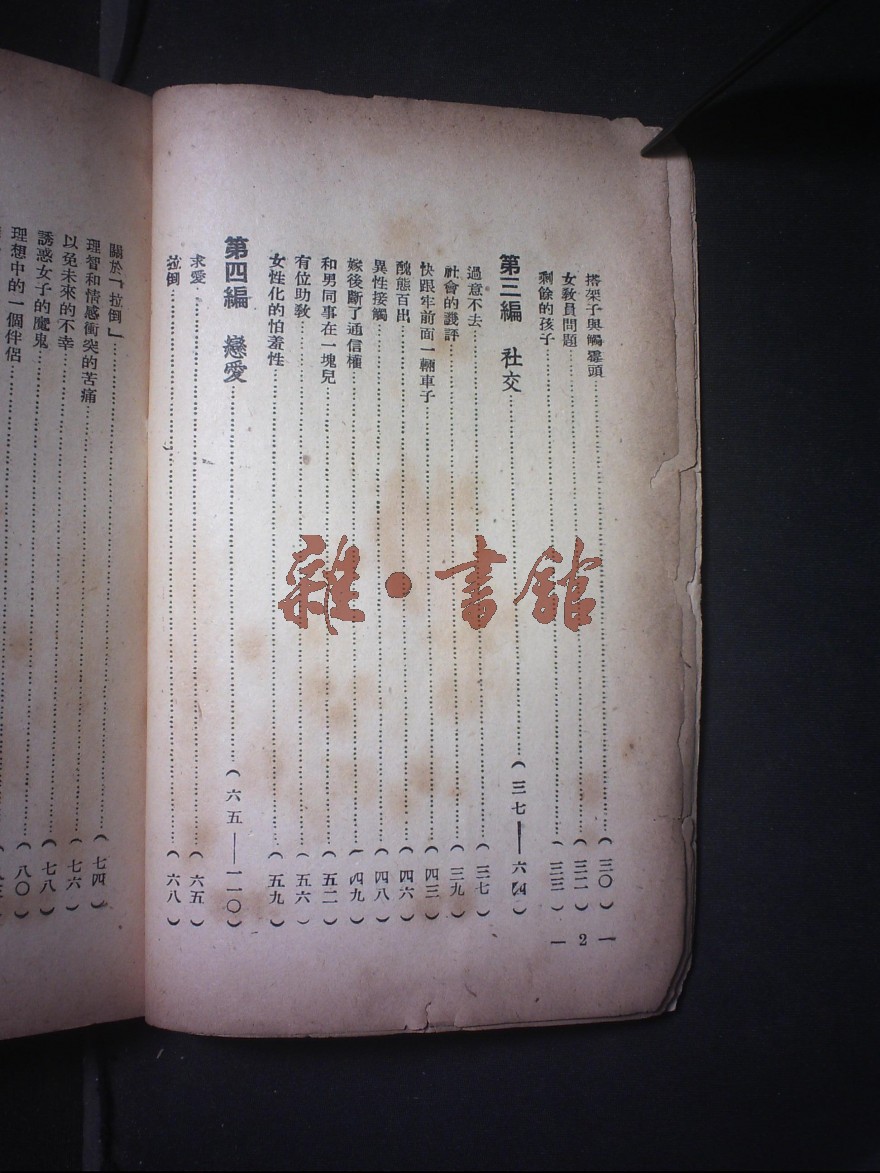 搭架子與觸霉頭………(三〇)
女敎員問題………(三二)
剩餘的孩子………(三三)
第三編 社交………(三七—六四)
過意不去………(三七)
社會的譏評………(三九)
快跟牢前面一輛車子………(四三)
醜態百出………(四六)
異性接觸………(四八)
嫁後斷了通信權………(四九)
和男同事在一塊兒………(五二)
有位助敎………(五六)
女性化的怕羞性………(五九)
第四編 戀愛………(六五—一一〇)
求愛………(六五)
拉倒………(六八)
— 2 —
關於『拉倒』………(七四)
理智和情感衝突的苦痛………(七六)
以免未來的不幸………(七八)
誘惑女子的魔鬼………(八〇)
理想中的一個伴侶
雜·書館